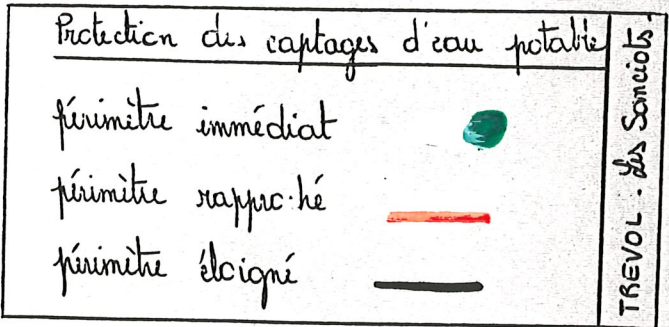 Protection des captages d'eau potable
périmètre immédiat
périmètre rapproché
périmètre éloigné
TREVOL. Les Sanciots.